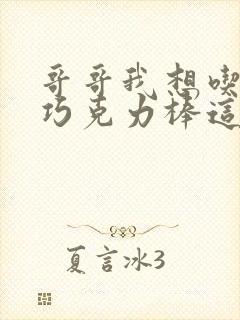 哥哥我想喫
巧克力棒這
夏言冰3